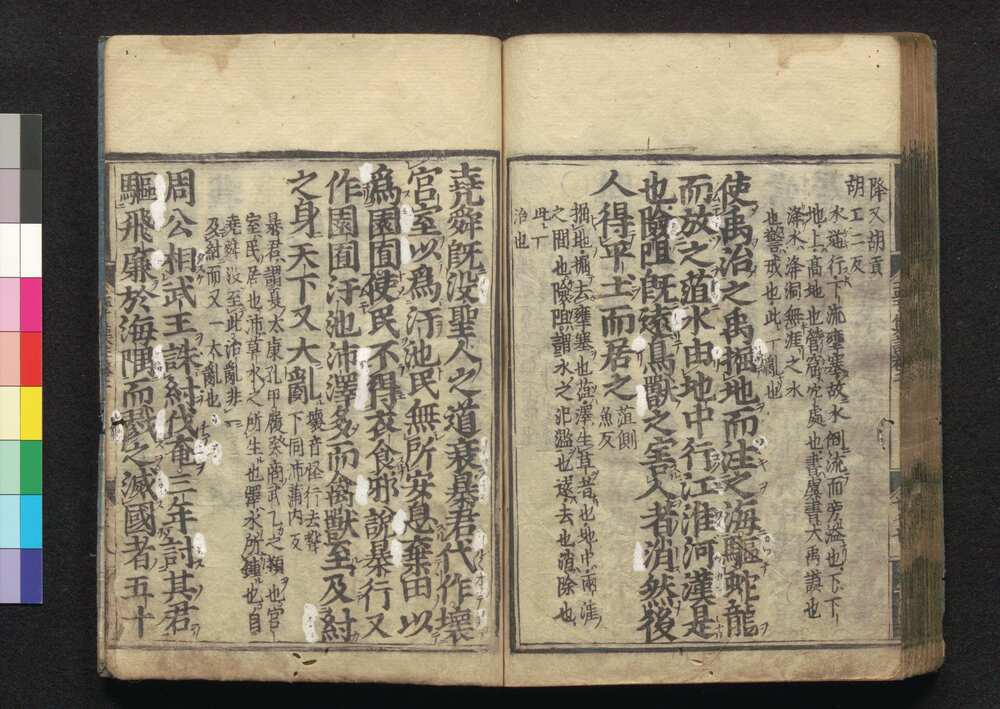 降又胡貢
胡工二反
水逆行下流壅塞故水倒流而旁溢也下下
地上高地也營窟穴處也書虞書大禹謨也
洚水洚洞無涯之水
也警戒也此一亂也
使禹治之禹掘地而注之海驅蛇龍
而放之菹水由地中行江淮河漢是
也險阻既遠鳥獸之害人者消然後
人得平土而居之
菹側
魚反
掘地掘去壅塞也菹澤生草者也地中兩涯
之間也險阻謂水之氾濫也遠去也消除也
此一
治也
堯舜既没聖人之道衰暴君代作壞
宮室以爲汙池民無所安息棄田以
爲園囿使民不得衣食邪說暴行又
作園囿汙池沛澤多而禽獸至及紂
之身天下又大亂
壞音怪行去聲
下同沛蒲内反
暴君謂夏太康孔甲履癸商武乙之類也宮
室民居也沛草木之所生也澤水所鍾也自
堯舜没至此治亂非一
及紂而又一大亂也
周公相武王誅紂伐奄三年討其君
驅飛廉於海隅而戮之滅國者五十